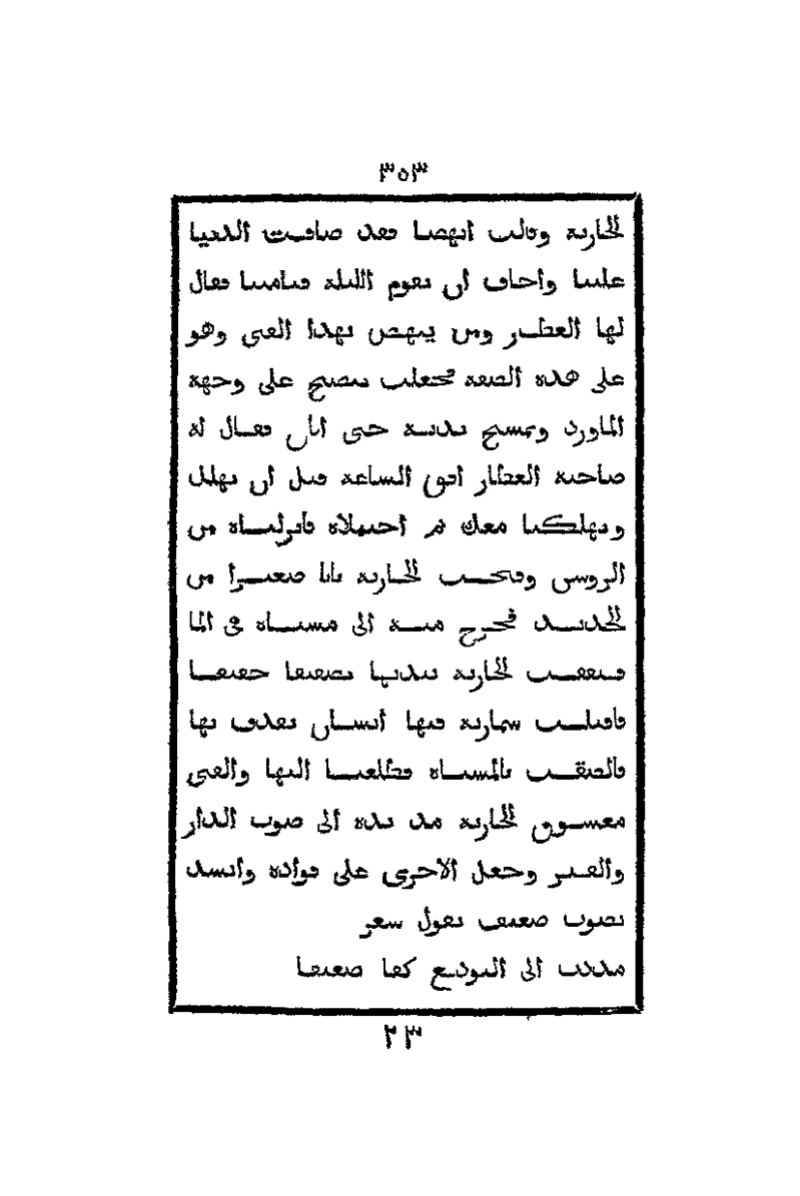 ٣٥٣
الجارية وقالت انهضا فقد ضاقت الدنيا
علينا واخاف ان تقوم الليلة قيامتنا فقال
لها العطار ومن ينهض بهذا الفتى وهو
على هذه الصفة فجعلت تنضح على وجهه
الماورد وتمسح يديه حتى افاق فقال له
صاحبه العطار افق الساعة قبل ان تهلك
وتهلكنا معك ثم احتملاه فانزلناه من
الروشن وفتحت الجارية بابا صغيرا من
الحديد فخرج منه الى مسناة في الما
فصفقت الجارية بيديها تصفيقا خفيفا
فاقبلت سمارية فيها انسان يقذف بها
فالتصقت بالمسناة فطلعنا اليها والفتى
معشوق الجارية مد يده الى صوب الدار
والقصر وجعل الاخرى على فواده وانشد
بصوت ضعيف يقول شعر
مددت الى التوديع كفا ضعيفا
٢٣